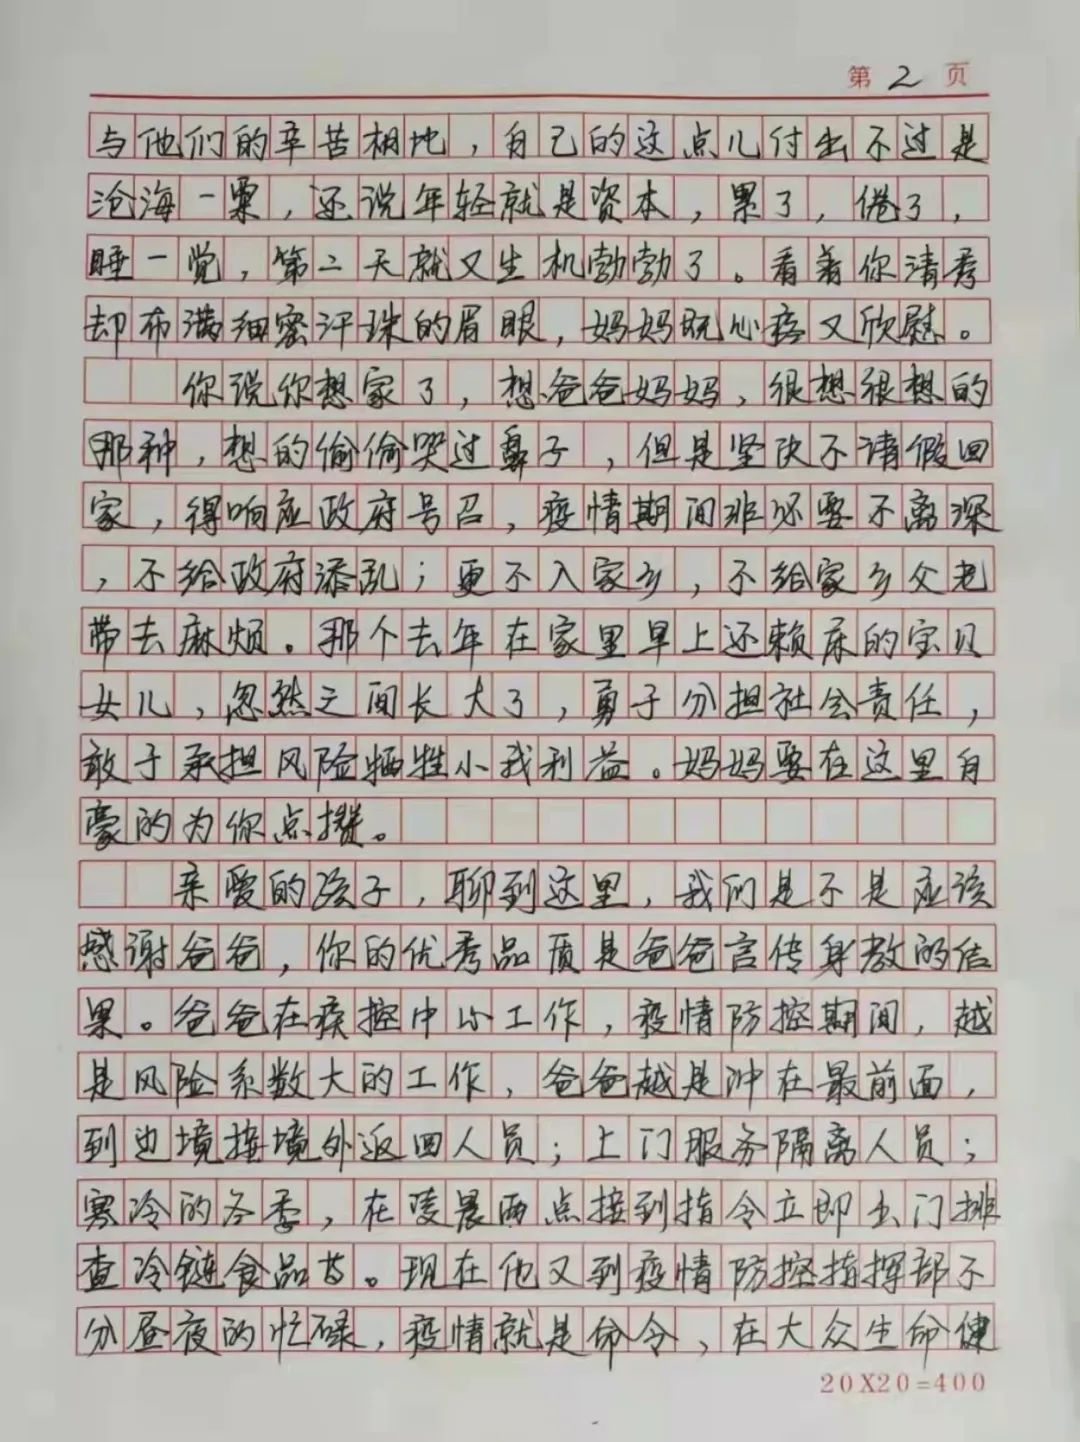 第2页
与他们的辛苦相比,自己的这点儿付出不过是
沧海一粟,还说年轻就是资本,累了,倦了,
睡一觉,第二天就又生机勃勃了。看着你清秀
却布满细密汗珠的眉眼,妈妈既心疼又欣慰。
你说你想家了,想爸爸妈妈,很想很想的
那种,想的偷偷哭过鼻子,但是坚决不请假回
家,得响应政府号召,疫情期间非必要不离深
,不给政府添乱;更不入家乡,不给家乡父老
带去麻烦。那个去年在家里早上还赖床的宝贝
女儿,忽然之间长大了,勇于分担社会责任,
敢于承担风险牺牲小我利益。妈妈要在这里自
豪的为你点攒。
亲爱的孩子,聊到这里,我们是不是应该
感谢爸爸,你的优秀品质是爸爸言传身教的结
果。爸爸在疾控中心工作,疫情防控期间,越
是风险系数大的工作,爸爸越是冲在最前面,
到边境接境外返回人员;上门服务隔离人员;
寒冷的冬季,在凌晨两点接到指令立即出门排
查冷链食品等。现在他又到疫情防控指挥部不
分昼夜的忙碌,疫情就是命令,在大众生命健
20X20=400